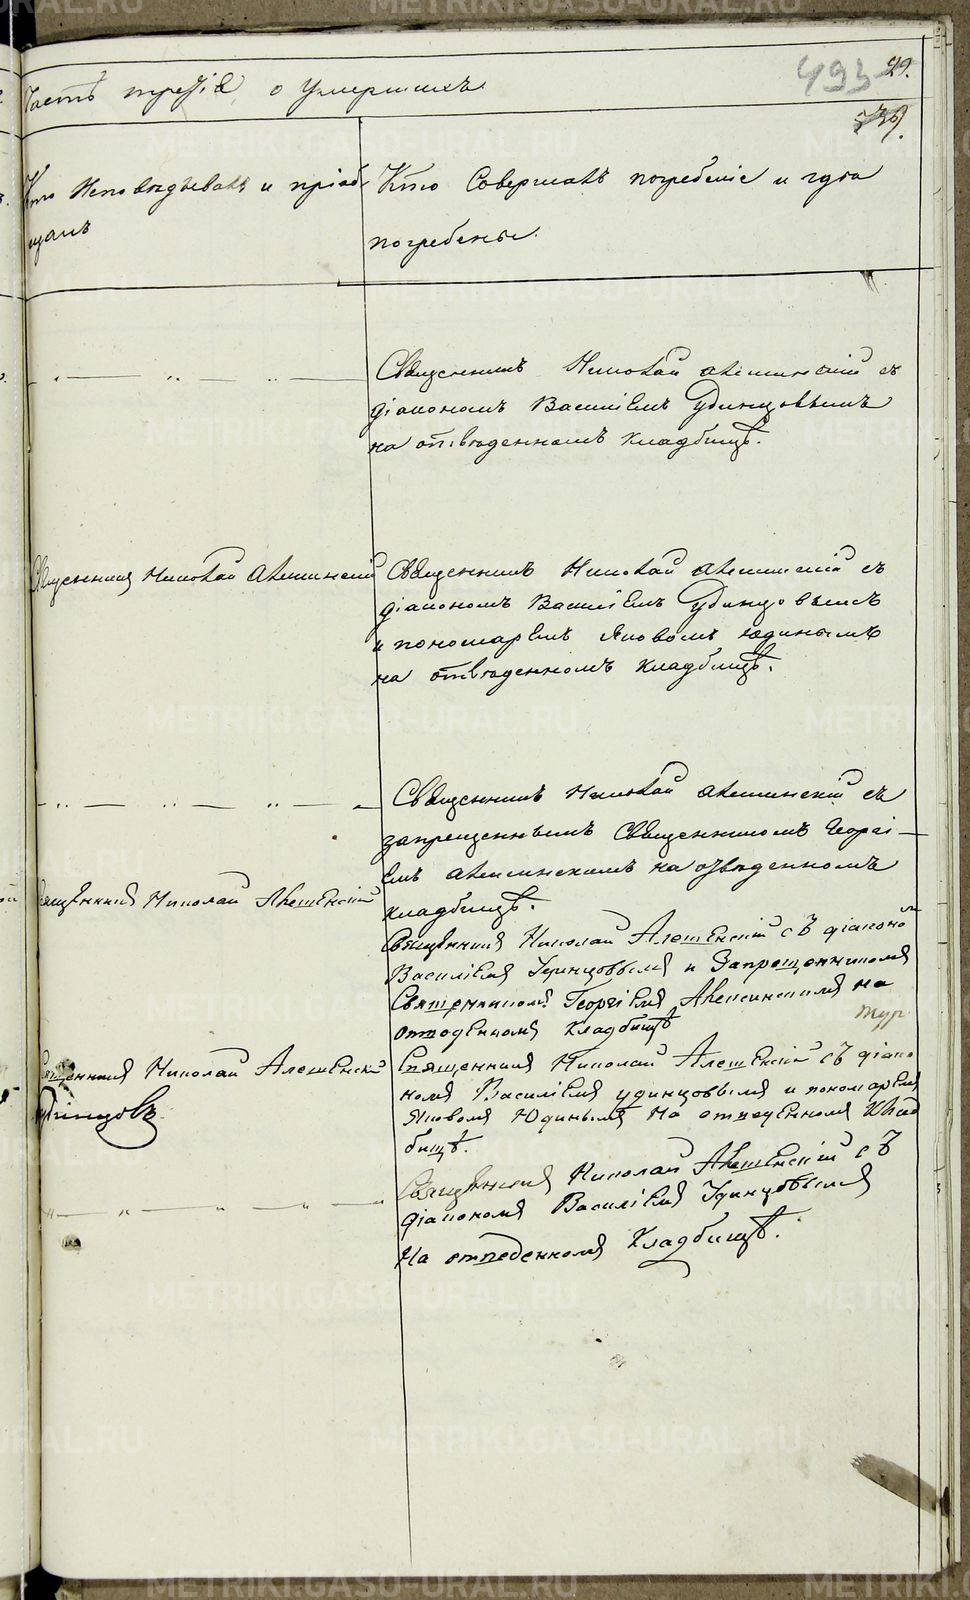 Часть третія о умершихъ
493
29.
539.
Кто Исповѣдывалъ и пріоб-
щалъ
Кто Совершалъ погребеніе и гдѣ
погребены.
Священникъ Николай Алешинскій съ
діакономъ Василіемъ Удинцовымъ
на отвѣденномъ кладбищѣ.
Священникъ Николай Алешинскій
Священникъ Николай Алешинскій съ
діакономъ Василіемъ Удинцовымъ
и пономаремъ Яковомъ Юдинымъ
на отвѣденномъ кладбищѣ.
Священникъ Николай Алешинскій съ
запрещеннымъ Священникомъ Георгі-
емъ Алешинскимъ на отвѣденномъ
кладбищѣ.
Священникъ Николай Алешенскій
Священникъ Николай Алешенскій съ діаконо
Василіемъ Удинцовымъ и Запрещеннымъ
Священникомъ Георгіемъ Алешинскимъ на
отводенномъ кладбищѣ
Священникъ Николай Алешенскій
Удинцовъ
Священникъ Николай Алешенскій съ діако
номъ Василіемъ удинцовымъ и пономаремъ
Яковомъ Юдинымъ на отведенномъ Клад
бищѣ.
Священникъ Николай Алешенскій съ
діакономъ Василіемъ Удинцовымъ
На отведенномъ Кладбищѣ.
METRIKI.GASO-URAL.RU